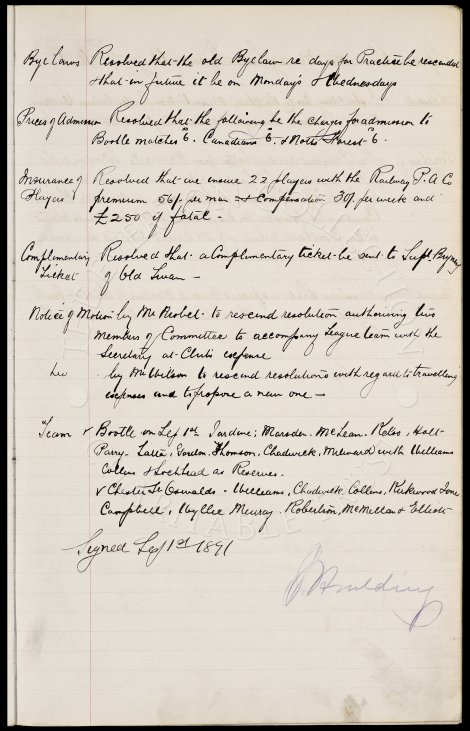 Bye Laws Resolved that the old Bye law re days for Practice be rescended
& that in future it be on Monday's & Wednesdays
Prices of Admission Resolved that the following be the Charges for admission to
Bootle matches 6. Canadians 6. & Notts Forest 6.
Insurance of Players Resolved that we insure 22 players with the Railway P. A Co
premium 56/- per man Compensation 30/- per week and
£250 if fatal -
Complimentary Ticket Resolved that a Complimentary ticket be sent to Supt.
of Old Swan -
Notice of Motion by Mr to rescend resolution authorising two
Members of Committee to accompany League team with the
Secretary at Clubs expense
by Mr Wilson to rescend resolutions with regard to travelling
expenses and to propose a new one -
Team v Bootle on Sep 1st Jardine; Marsden. McLean. Kelso. Holt
Parry. Latta. Gordon. Thomson, Chadwick, Milward with Williams
Collins & Lochhead as Reserves.
v Chester St Oswalds. Williams, Chadwick, Collins, Kirkwood Jone
Campbell, Wyllie Murray. Robertson, McMillan & Elliott
Signed Sep 1st 1891
Houlding